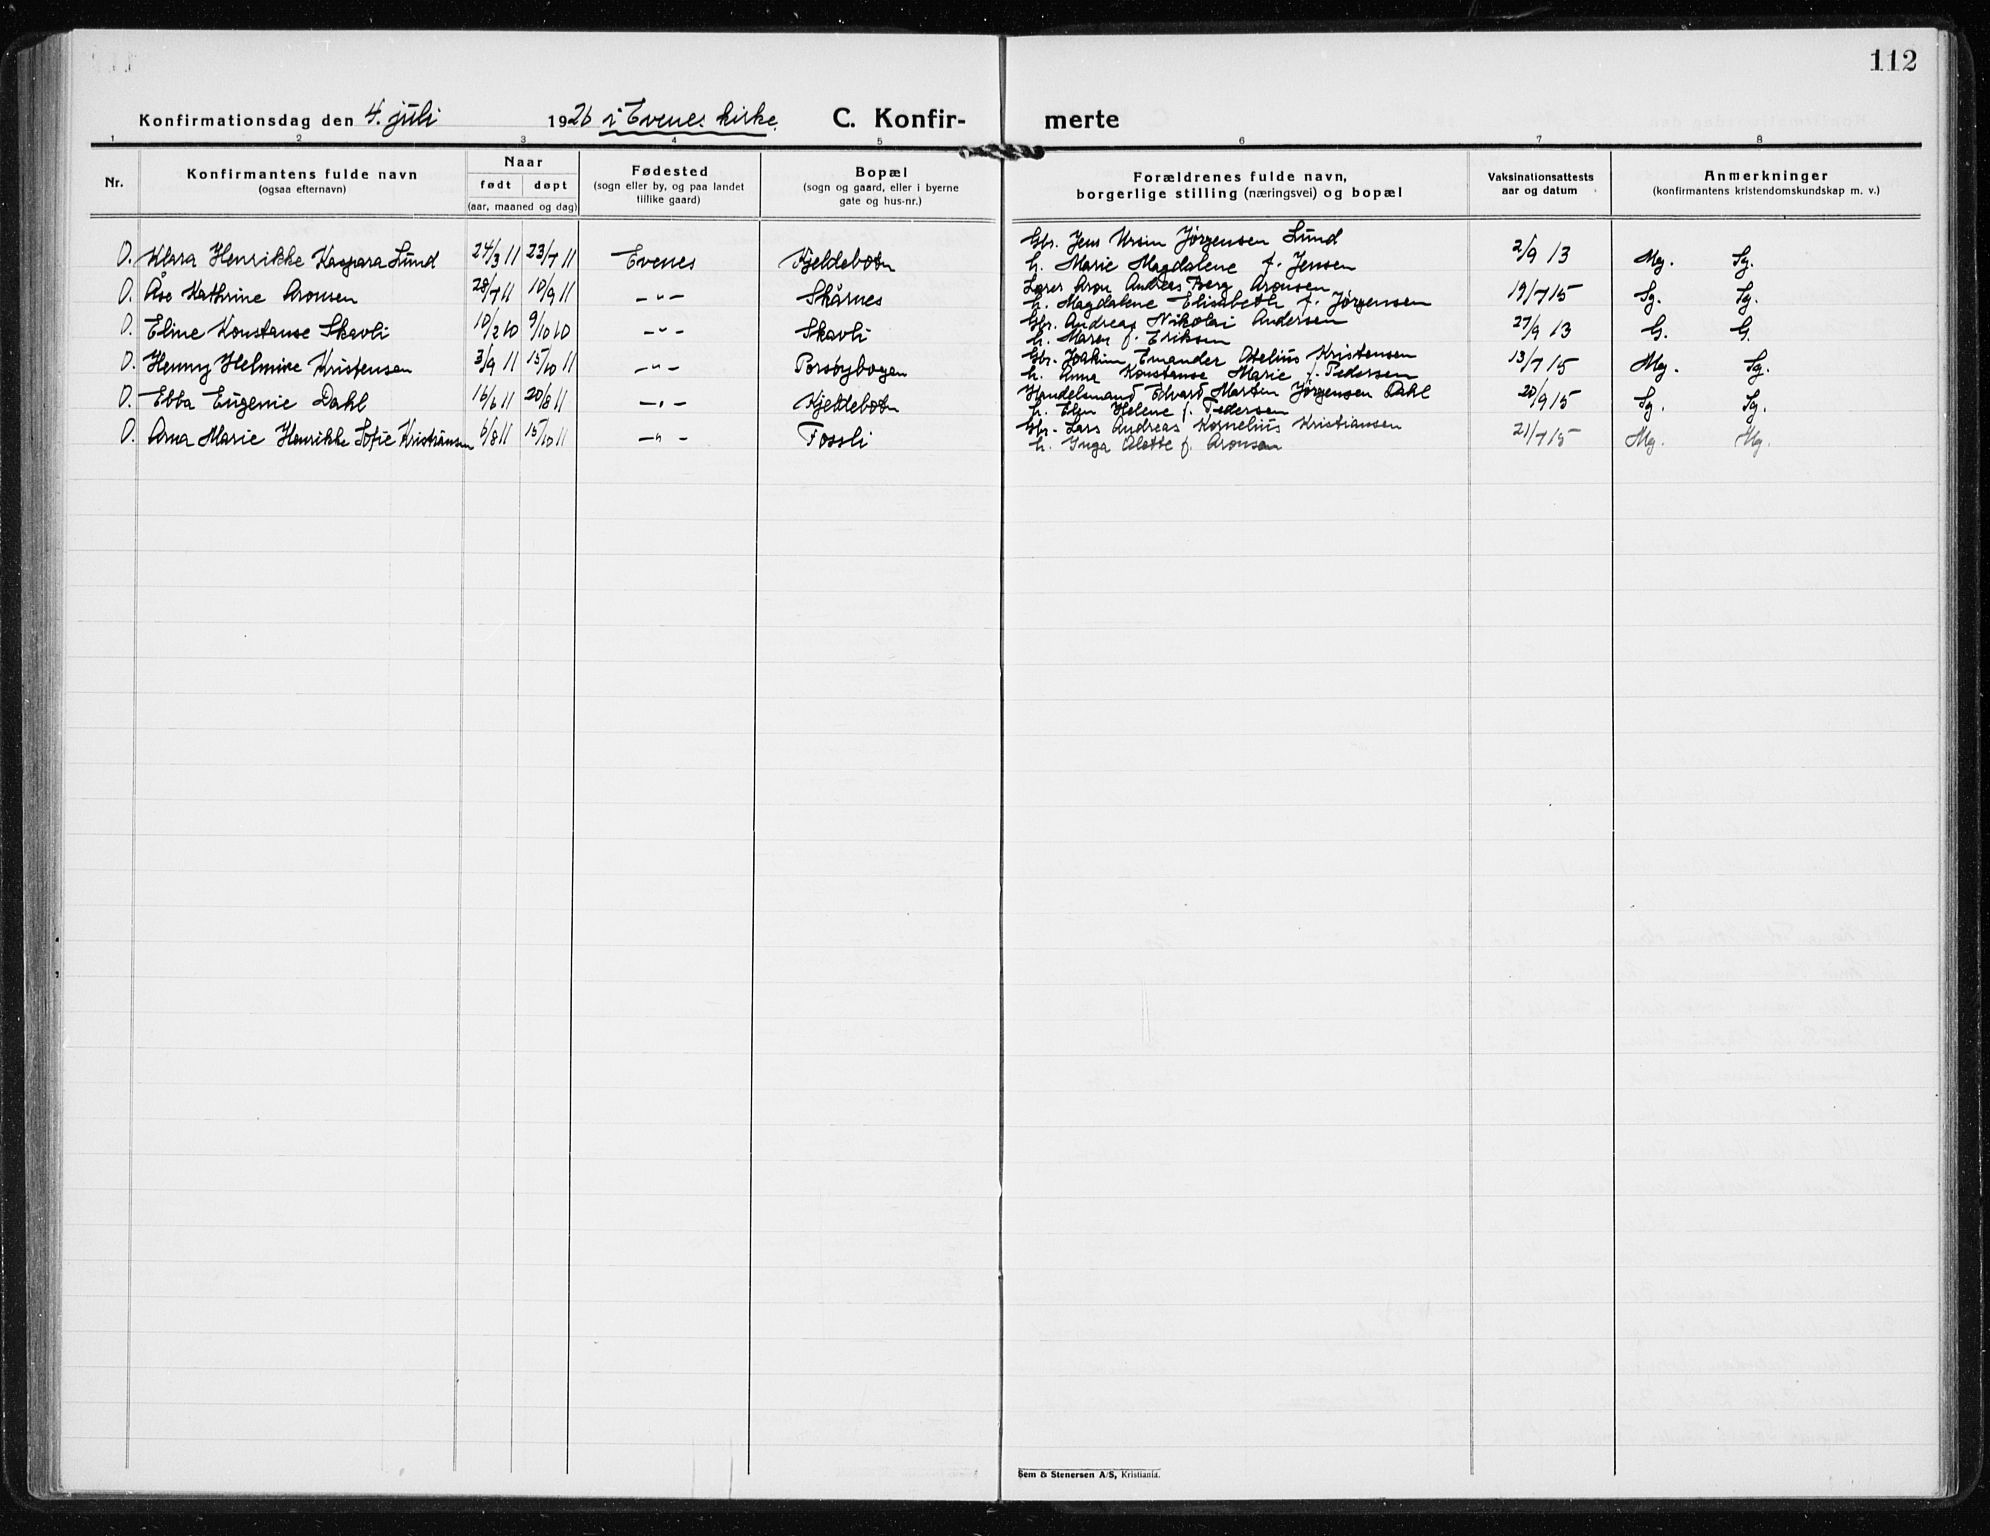 112
Konfirmationsdag den 4. juli 1926 i Evenes kirke. C. Konfir- merte
1 2 3 4 5 6 7 8
Nr. Konfirmantens fulde navn (ogsaa efternavn) Naar født døpt (aar, maaned og dag) Fødested (sogn eller by, og paa landet tillike gaard) Bopæl (sogn og gaard, eller i byerne gate og hus-nr.) Forældrenes fulde navn, borgerlige stilling (næringsvei) og bopæl Vaksinationsattests aar og datum Anmerkninger (konfirmantens kristendomskundskap m. v.)
Gbr. Jens Ursin Jørgensen Lund
O. Klara Henrikke Kaspara Lund 24/3 11 23/7 11 Evenes Kjeldebotn h. Marie Magdalene f. Jensen 2/9 13 Mg. Sg.
Lærer Aron Andreas Berg Aronsen
O. Åse Kathrine Aronsen 28/7 11 10/9 11 —"— Skårnes h. Magdalene Elisabeth f. Jørgensen 19/7 15 Sg. Sg.
Gbr. Andreas Nikolai Andersen
O. Eline Konstanse Skavli 10/2 10 9/10 10 —"— Skavli h. Maren f. Eriksen 27/9 13 G. G.
Gbr. Joakim Emander Otelius Kristensen
O. Henny Helmine Kristensen 3/9 11 15/10 11 —"— Porsøybogen h. Anna Konstanse Marie f. Pedersen 13/7 15 Mg. Sg.
Handelsmand Edvard Marten Jørgensen Dahl
O. Ebba Eugenie Dahl 16/6 11 20/8 11 —"— Kjeldebotn h. Elen Helene f. Pedersen 20/9 15 Sg. Sg.
Gbr. Lars Andreas Kornelius Kristiansen
O. Arna Marie Henrikke Sofie Kristiansen 6/8 11 15/10 11 —"— Fossli h. Inga Olette f. Aronsen 21/7 15 Mg. Mg.
Sem & Stenersen A/S, Kristiania.